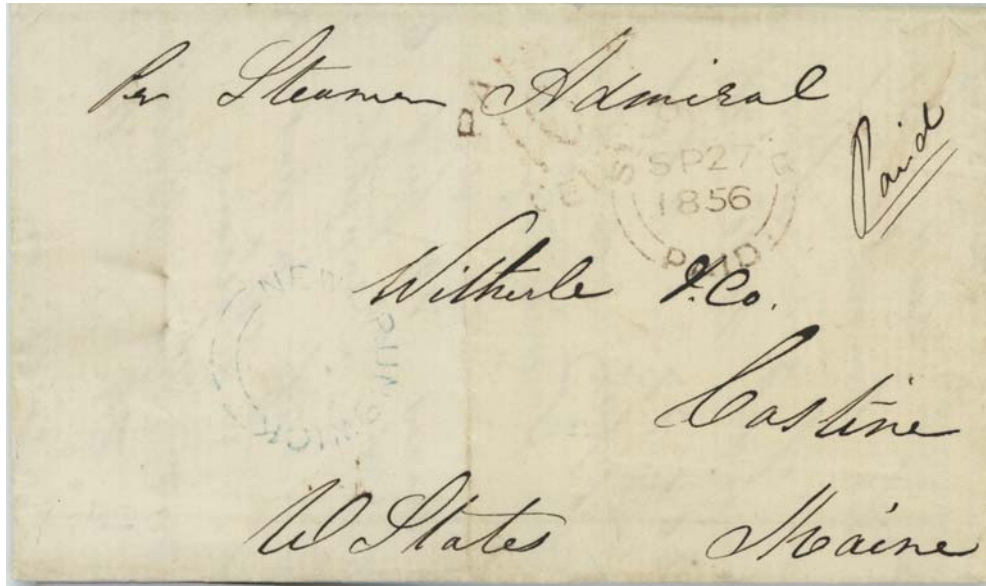 Per Steamer Admiral
Paid
SP 27
1856
PAID
Witherle & Co.
NEW BRUNSWICK
Castine
U States Maine